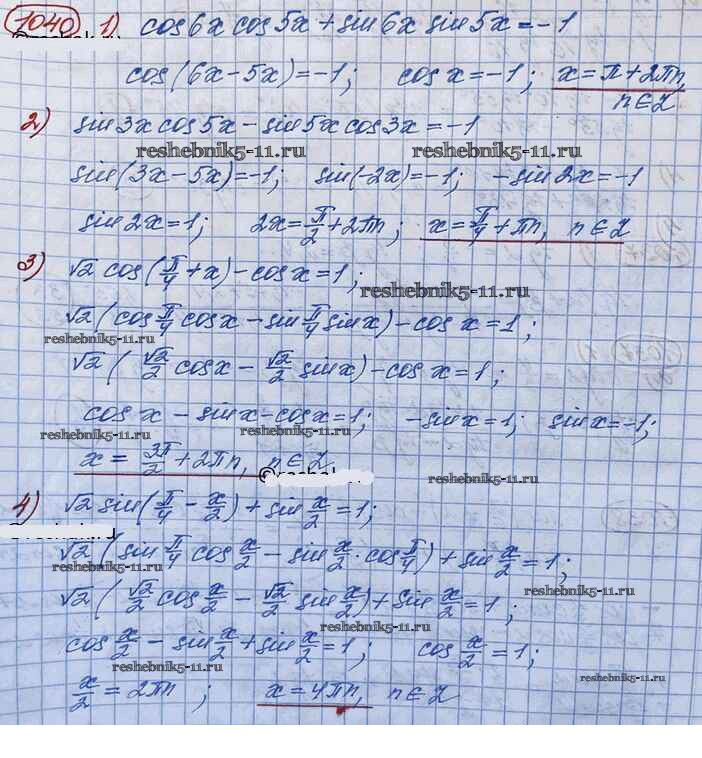 1040 1) cos6x cos5x + sin6x sin5x = -1
cos(6x-5x) = -1; cos x = -1; x = π + 2πn,
n∈Z
2) sin3x cos5x - sin5x cos3x = -1
reshebnik5-11.ru reshebnik5-11.ru
sin(3x-5x) = -1; sin(-2x) = -1; -sin2x = -1
sin2x = 1; 2x = π/2 + 2πn; x = π/4 + πn, n∈Z
3) √2 cos(π/4 + x) - cos x = 1;
reshebnik5-11.ru
√2 (cos π/4 cos x - sin π/4 sin x) - cos x = 1;
reshebnik5-11.ru
√2 (√2/2 cos x - √2/2 sin x) - cos x = 1;
cos x - sin x - cos x = 1; -sin x = 1; sin x = -1;
reshebnik5-11.ru reshebnik5-11.ru
x = 3π/2 + 2πn, n∈Z
reshebnik5-11.ru
4) √2 sin(π/4 - x/2) + sin x/2 = 1;
√2 (sin π/4 cos x/2 - sin x/2 · cos π/4) + sin x/2 = 1;
reshebnik5-11.ru
reshebnik5-11.ru
√2 (√2/2 cos x/2 - √2/2 sin x/2) + sin x/2 = 1;
reshebnik5-11.ru
cos x/2 - sin x/2 + sin x/2 = 1; cos x/2 = 1;
reshebnik5-11.ru
reshebnik5-11.ru
x/2 = 2πn; x = 4πn, n∈Z